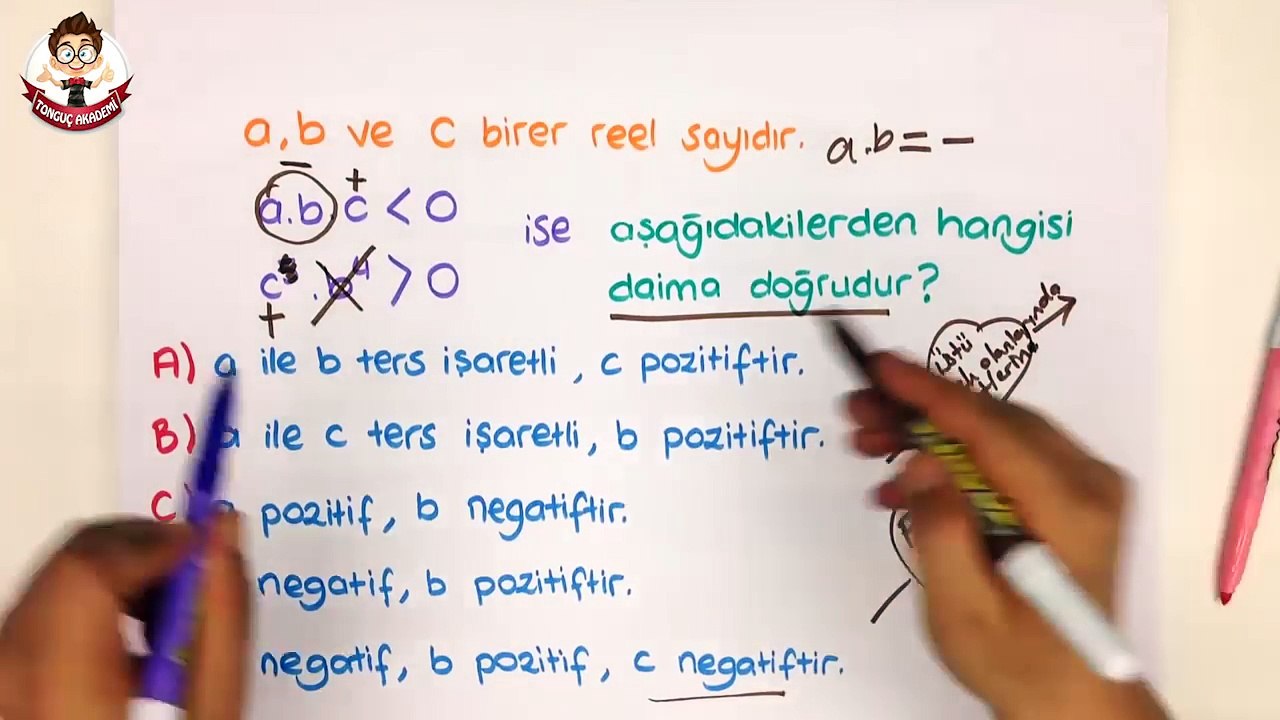 TONGUÇ AKADEMİ
a,b ve c birer reel sayıdır. a.b = -
- +
a.b.c < 0 ise aşağıdakilerden hangisi
c .b⁴ > 0 daima doğrudur?
+
A) a ile b ters işaretli, c pozitiftir.
B) a ile c ters işaretli, b pozitiftir.
C) a pozitif, b negatiftir.
negatif, b pozitiftir.
negatif, b pozitif, c negatiftir.
üstü
olanlarında